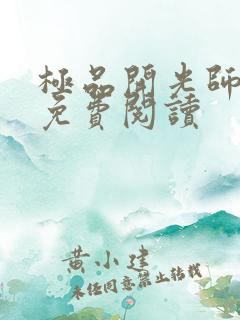 極品開光師
免費閱讀
黄小建
未经同意禁止转载